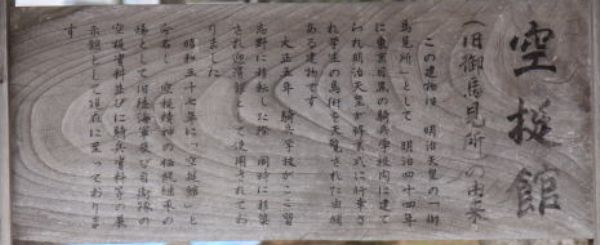 空挺館
（旧御馬見所）の由来
この建物は　明治天皇の「御
馬見所」として　明治四十四年
に東京目黒の騎兵学校内に建て
られ明治天皇が卒業式に行幸さ
れ学生の馬術を天覧された由緒
ある建物です
大正五年　騎兵学校がここ習
志野に移転した際　同時に移築
され迎賓館として使用されてお
りました
昭和三十七年に「空挺館」と
命名し　空挺精神の伝統継承の
場として旧陸海軍及び自衛隊の
空挺資料並びに騎兵資料等の展
示館として現在に至っておりま
す